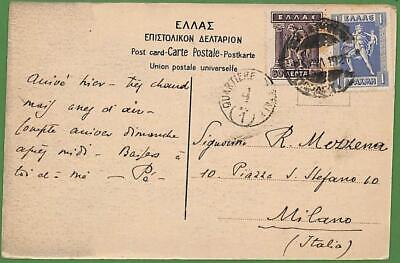 ΕΛΛΑΣ
ΕΠΙΣΤΟΛΙΚΟΝ ΔΕΛΤΑΡΙΟΝ
Post card-Carte Postale-Postkarte
Union postale universelle
ΕΛΛΑΣ
ΛΕΠΤΑ
ΕΛΛΑΣ
1 ΔΡΑΧΜΗ 1
QUARTIERE
Arrivé hier - très chaud
mais assez d'air -
Compte arriver dimanche
après midi - Baisers à
toi et - mé - Pé
Signorino R. Mezzena
10, Piazza S. Stefano 10
Milano
(Italia)